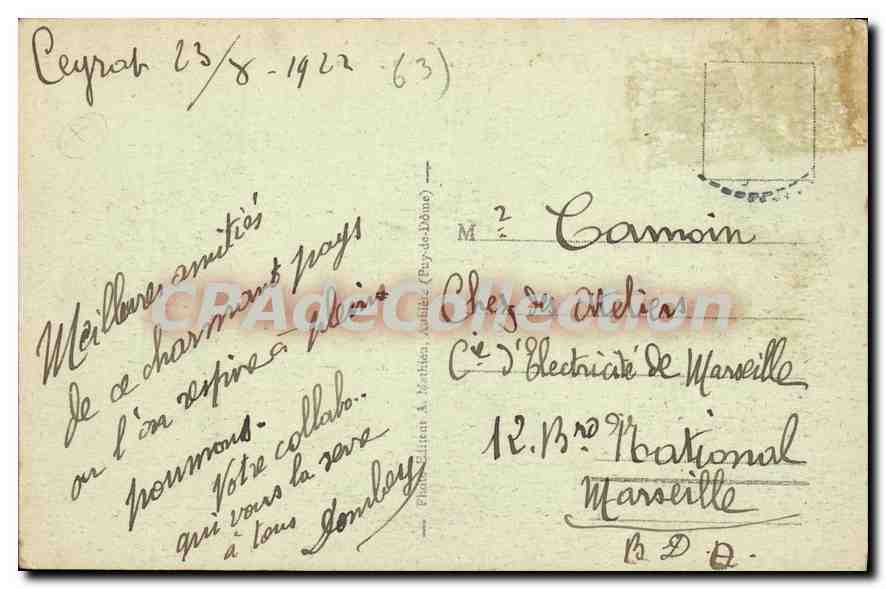 Ceyrat 23/8 - 1922 (63)
Meilleures amitiés
de ce charmant pays
ou l'on respire à pleins
poumons.
Votre collabo..
qui vous la serre
à tous Dombey
Photo Editeur A. Mathieu, Aubière (Puy-de-Dôme)
Mr Camoin
Chef des Ateliers
Cie d'Electricité de Marseille
12. Brd National
Marseille
B D R.
CPA de Collection.com